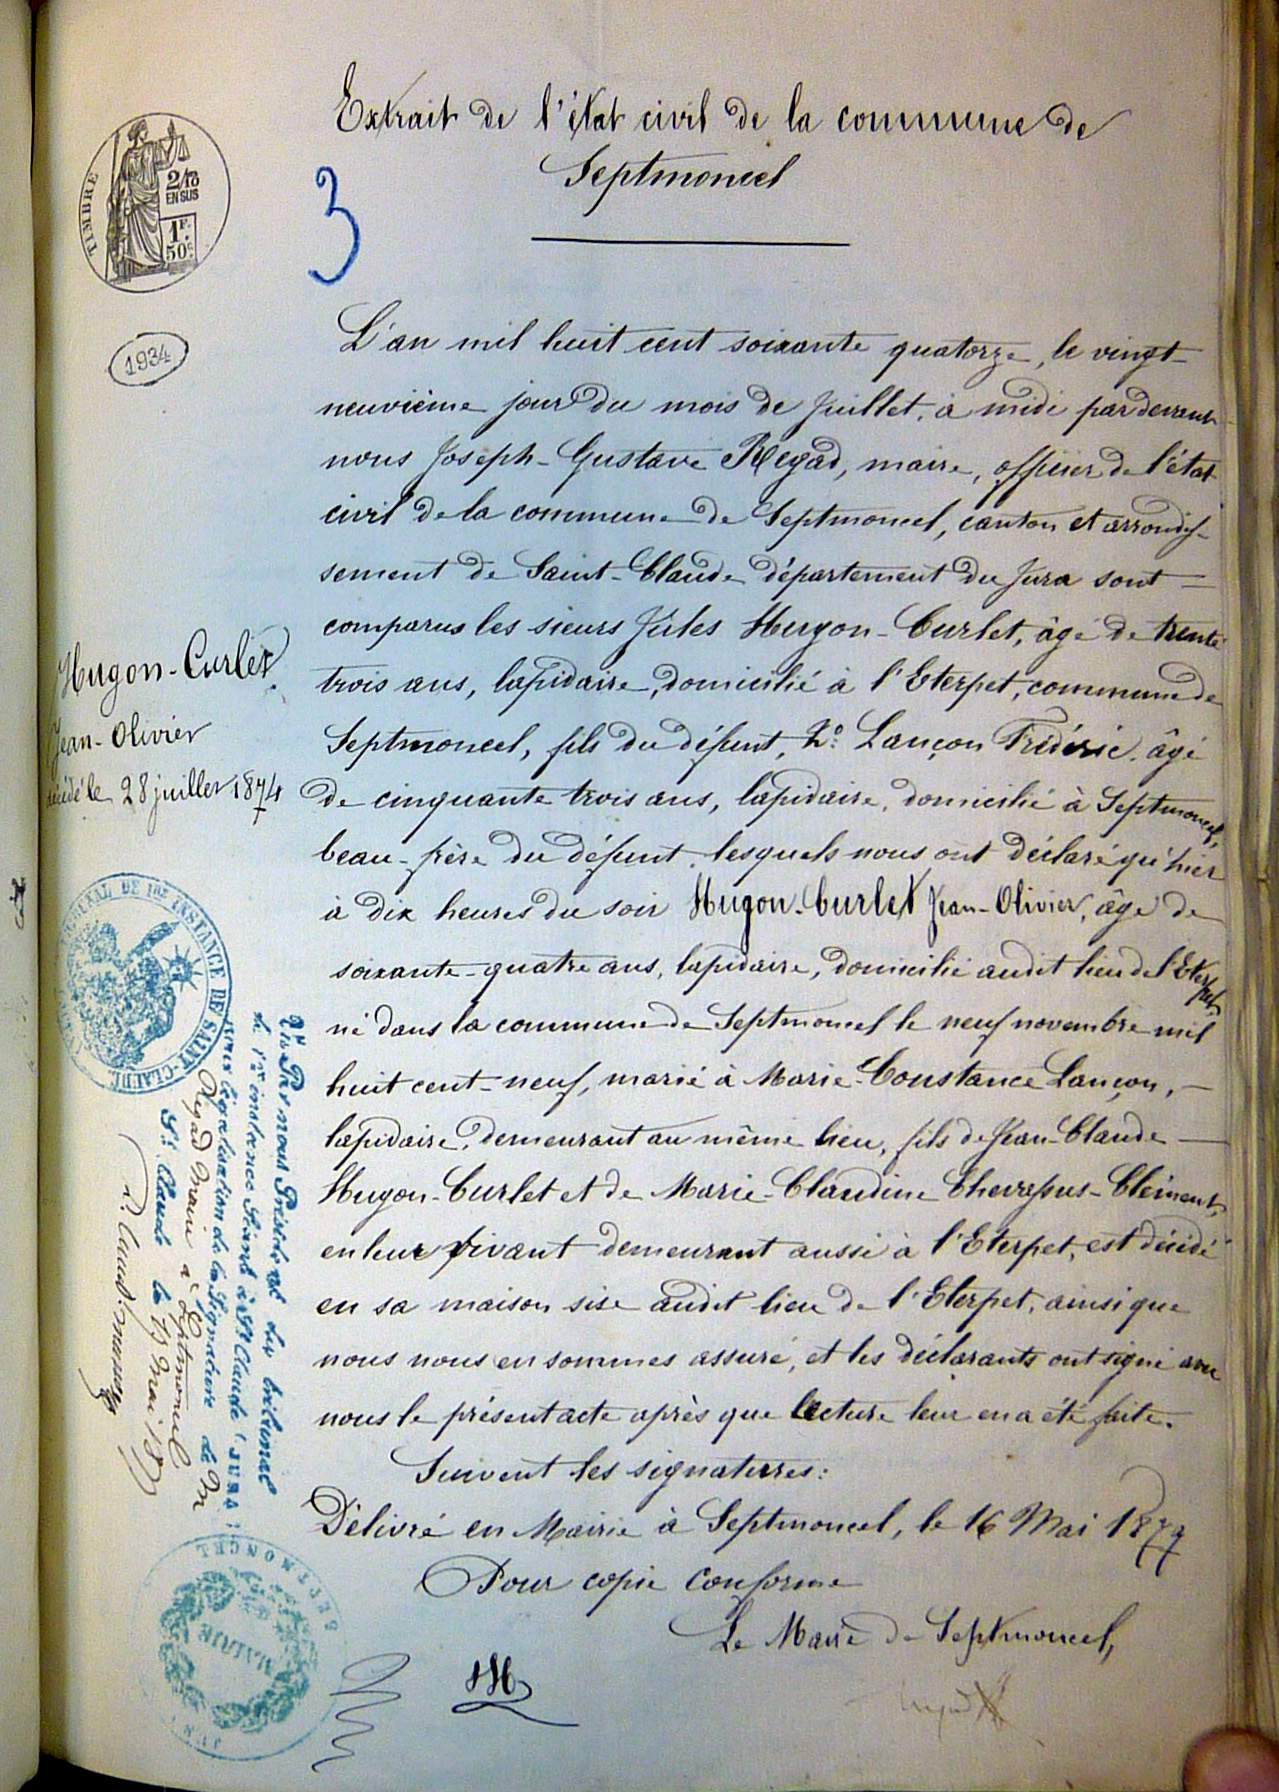 Extrait de l'état civil de la commune de
Septmoncel
TIMBRE
2/10
EN SUS
1F.
50c.
3
1934
L'an mil huit cent soixante quatorze, le vingt-
neuvième jour du mois de Juillet, à midi par devant
nous Joseph-Gustave Regad, maire, officier de l'état
civil de la commune de Septmoncel, canton et arrondis-
sement de Saint-Claude département du Jura sont
comparus les sieurs Jules Hugon-Curlet, âgé de trente
trois ans, lapidaire, domicilié à l'Eterpet, commune de
Septmoncel, fils du défunt, 2o: Lançon Frédéric, âgé
de cinquante trois ans, lapidaire, domicilié à Septmoncel,
beau-frère du défunt, lesquels nous ont déclaré qu'hier
à dix heures du soir Hugon-Curlet Jean-Olivier, âgé de
soixante-quatre ans, lapidaire, domicilié audit lieu de l'Eterpet,
né dans la commune de Septmoncel le neuf novembre mil
huit cent-neuf, marié à Marie-Constance Lançon,
lapidaire, demeurant au même lieu, fils de Jean-Claude
Hugon-Curlet et de Marie-Claudine Chevassus-Clément,
en leur vivant demeurant aussi à l'Eterpet, est décédé
en sa maison sise audit lieu de l'Eterpet, ainsi que
nous nous en sommes assuré, et les déclarants ont signé avec
nous le présent acte après que lecture leur en a été faite.
Suivent les signatures:
Délivré en Mairie à Septmoncel, le 16 Mai 1877
Pour copie conforme
Le Maire de Septmoncel,
Regad
Hugon-Curlet
Jean-Olivier
décédé le 28 juillet 1874
TRIBUNAL DE 1re INSTANCE DE SAINT-CLAUDE
Vu Par nous Président du tribunal
de 1re instance séant à St Claude (JURA)
pour légalisation de la signature de Mr
Regad Maire à Septmoncel
St Claude le Mai 18
SEPTMONCEL
MAIRIE
JURA